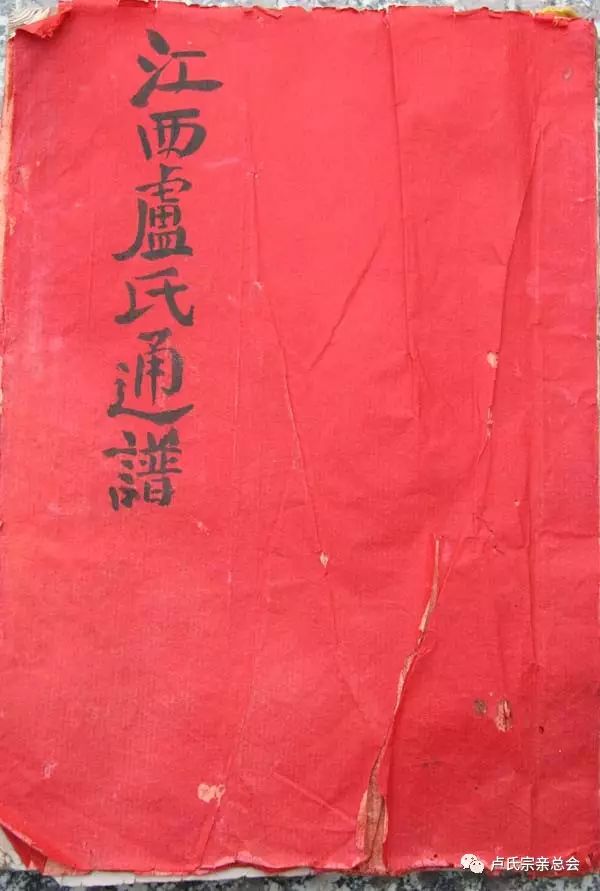 江西盧氏通譜
卢氏宗亲总会